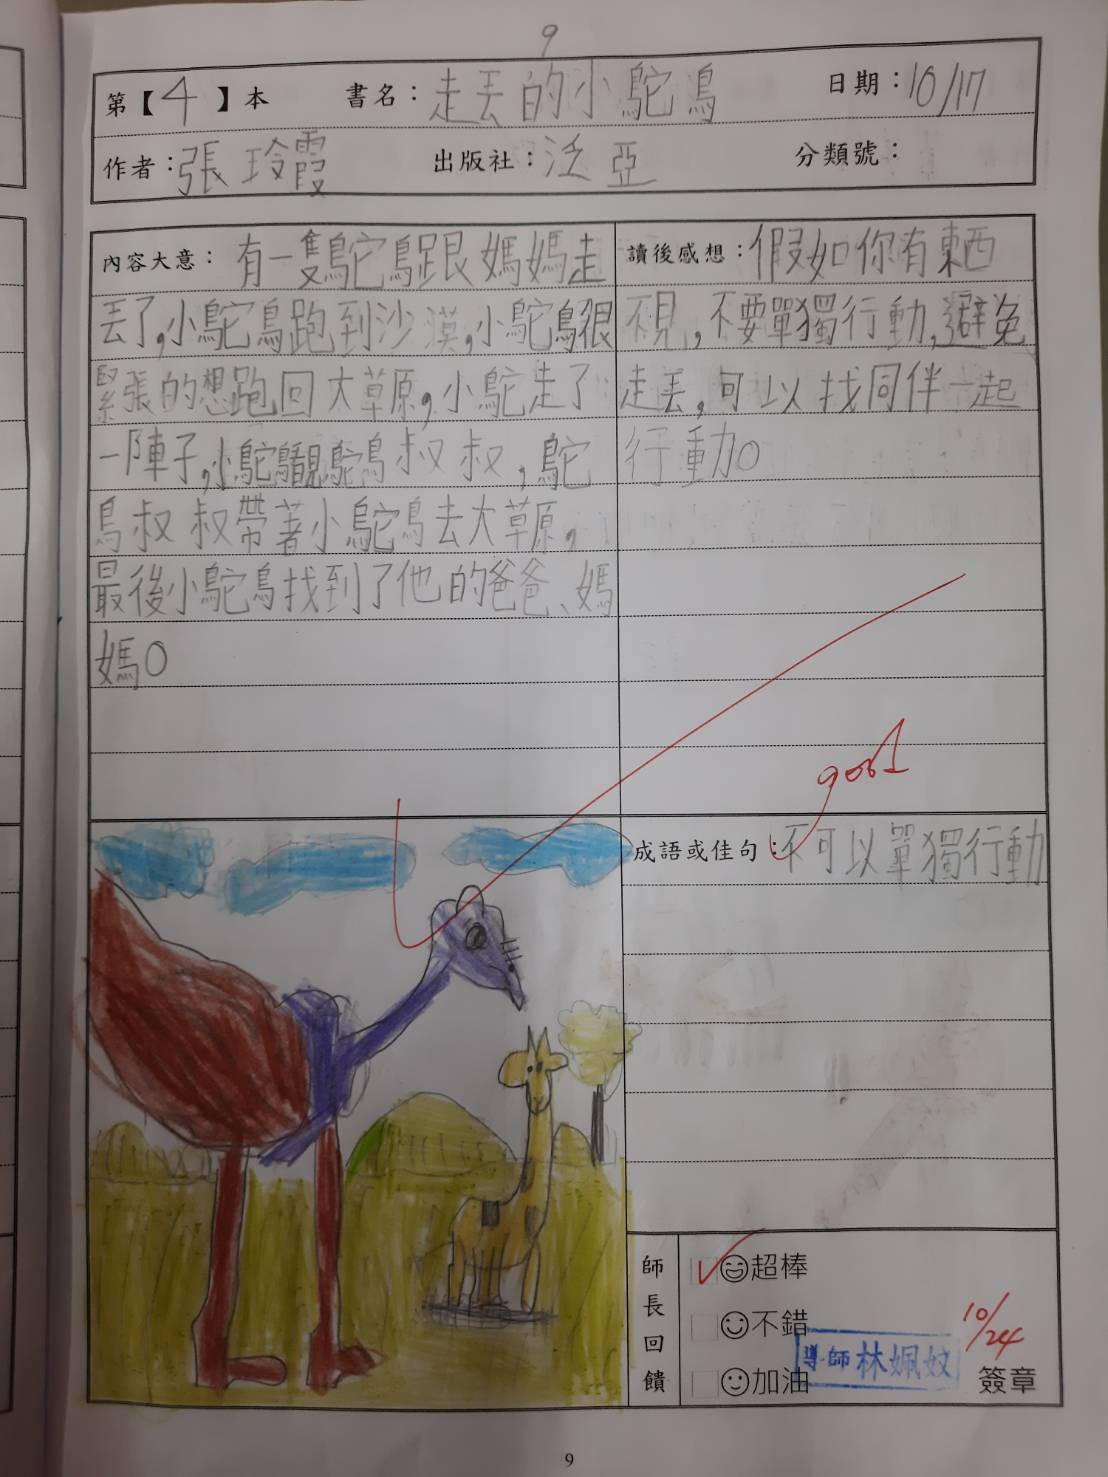 9
第【4】本 書名：走丟的小鴕鳥 日期：10/17
作者：張玲霞 出版社：泛亞 分類號：
內容大意：有一隻鴕鳥跟媽媽走
丟了,小鴕鳥跑到沙漠,小鴕鳥很
緊張的想跑回大草原,小鴕走了
一陣子,小鴕鳥看見鴕鳥叔叔,鴕
鳥叔叔帶著小鴕鳥去大草原,
最後小鴕鳥找到了他的爸爸、媽
媽。
讀後感想：假如你有東西
不見,不要單獨行動,避免
走丟,可以找同伴一起
行動。
good
成語或佳句：不可以單獨行動
師長回饋
超棒
不錯
加油
10/24
導師 林姵妏
簽章
9